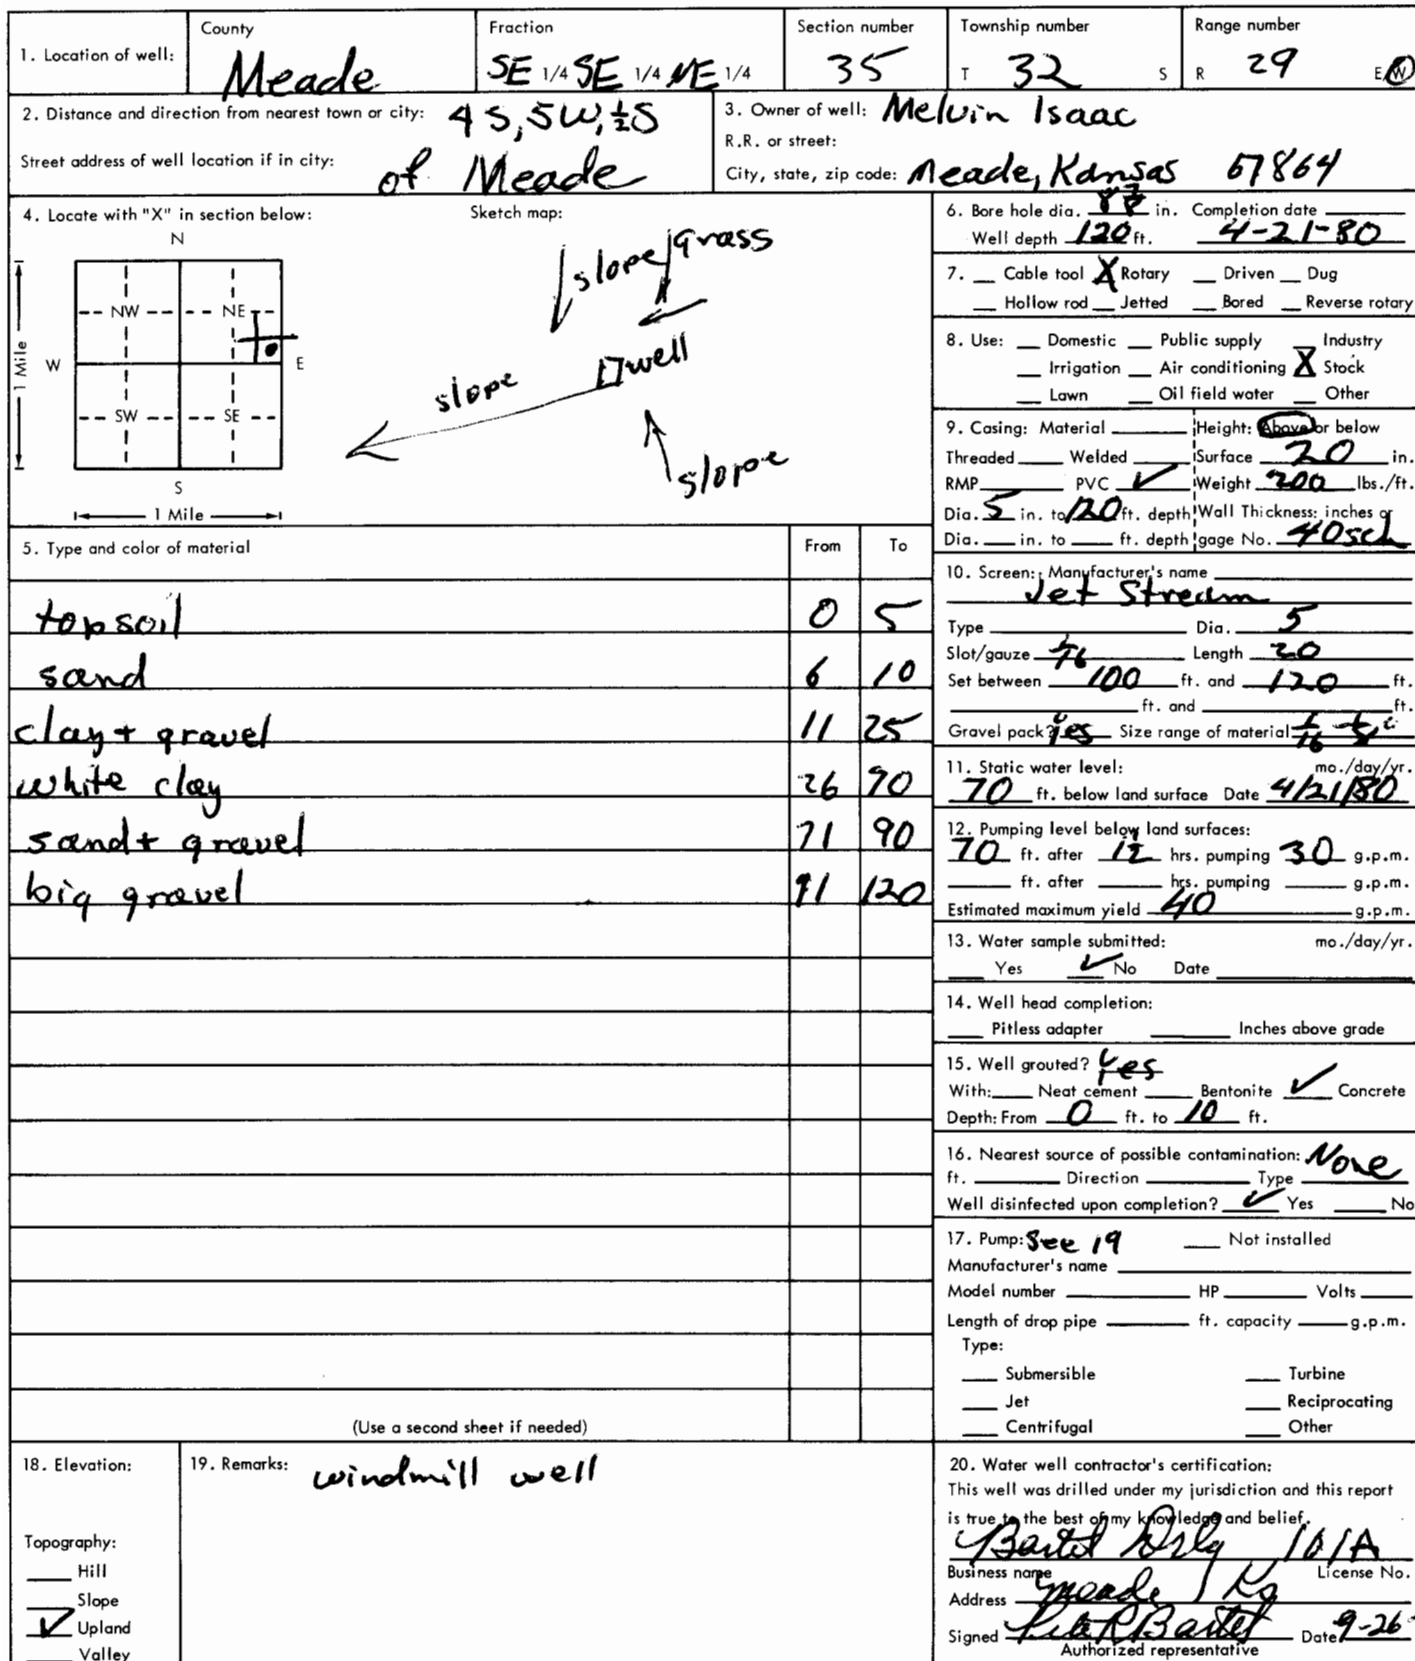 1. Location of well:
County
Meade
Fraction
SE 1/4 SE 1/4 NE 1/4
Section number
35
Township number
T 32 S
Range number
R 29 E/W
2. Distance and direction from nearest town or city: 4 S, 5 W, ½ S
Street address of well location if in city: of Meade
3. Owner of well: Melvin Isaac
R.R. or street:
City, state, zip code: Meade, Kansas 67864
4. Locate with "X" in section below:
N
NW NE
W E
SW SE
S
1 Mile
1 Mile
Sketch map:
slope grass
well
slope
slope
5. Type and color of material From To
topsoil 0 5
sand 6 10
clay + gravel 11 25
white clay 26 70
sand + gravel 71 90
big gravel 91 120
(Use a second sheet if needed)
6. Bore hole dia. in. Completion date
Well depth 120 ft. 4-21-80
7. Cable tool X Rotary Driven Dug
Hollow rod Jetted Bored Reverse rotary
8. Use: Domestic Public supply Industry
Irrigation Air conditioning X Stock
Lawn Oil field water Other
9. Casing: Material Height: Above or below
Threaded Welded Surface 20 in.
RMP PVC ✓ Weight 200 lbs./ft.
Dia. 5 in. to 120 ft. depth Wall Thickness: inches or
Dia. in. to ft. depth gage No. 40 sch
10. Screen: Manufacturer's name
Jet Stream
Type Dia. 5
Slot/gauze 1/16 Length 20
Set between 100 ft. and 120 ft.
ft. and ft.
Gravel pack? yes Size range of material
11. Static water level: mo./day/yr.
70 ft. below land surface Date 4/21/80
12. Pumping level below land surfaces:
70 ft. after hrs. pumping 30 g.p.m.
ft. after hrs. pumping g.p.m.
Estimated maximum yield 40 g.p.m.
13. Water sample submitted: mo./day/yr.
Yes ✓ No Date
14. Well head completion:
Pitless adapter Inches above grade
15. Well grouted? Yes
With: Neat cement Bentonite ✓ Concrete
Depth: From 0 ft. to 10 ft.
16. Nearest source of possible contamination: None
ft. Direction Type
Well disinfected upon completion? ✓ Yes No
17. Pump: See 19 Not installed
Manufacturer's name
Model number HP Volts
Length of drop pipe ft. capacity g.p.m.
Type:
Submersible Turbine
Jet Reciprocating
Centrifugal Other
18. Elevation:
Topography:
Hill
Slope
✓ Upland
Valley
19. Remarks: windmill well
20. Water well contractor's certification:
This well was drilled under my jurisdiction and this report
is true to the best of my knowledge and belief.
Bartel Drlg 101A
Business name License No.
Address Meade Ks
Signed Bartel Date 9-26
Authorized representative